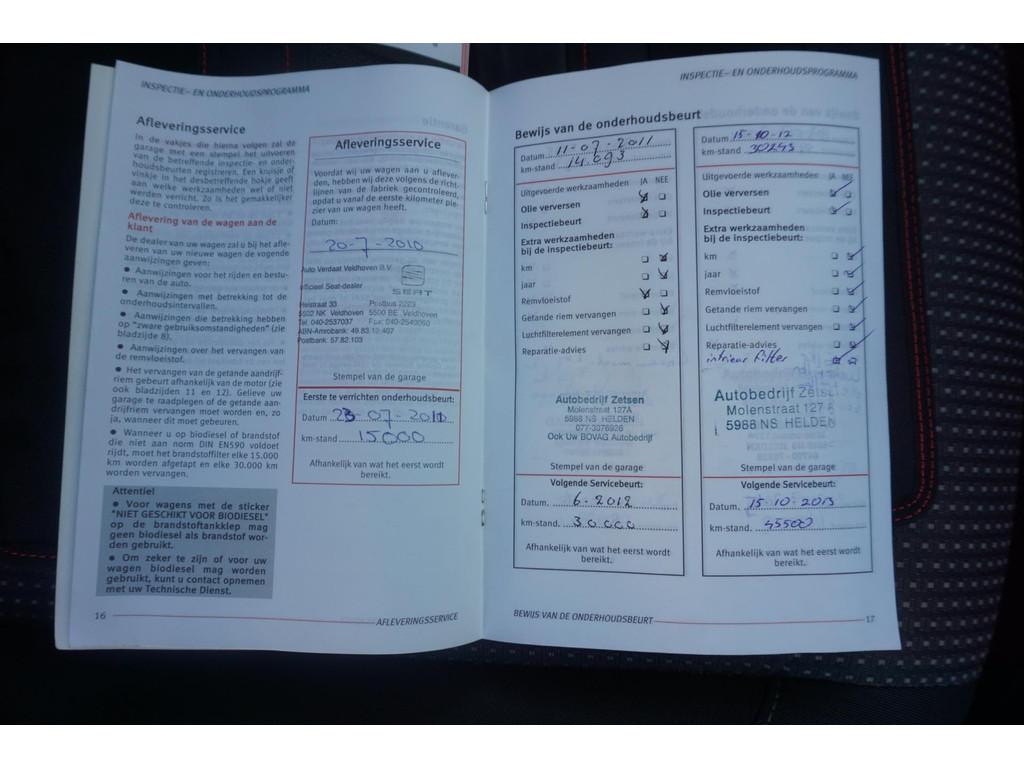 INSPECTIE- EN ONDERHOUDSPROGRAMMA
Afleveringsservice
In de vakjes die hierna volgen zal de
garage met een stempel het uitvoeren
van de betreffende inspectie- en onder-
houdsbeurten registreren. Een kruisje of
vinkje in het desbetreffende hokje geeft
aan welke werkzaamheden wel of niet
werden verricht. Zo is het gemakkelijker
deze te controleren.
Aflevering van de wagen aan de
klant
De dealer van uw wagen zal u bij het afle-
veren van uw nieuwe wagen de vogende
aanwijzingen geven:
● Aanwijzingen voor het rijden en bestu-
ren van de auto.
● Aanwijzingen met betrekking tot de
onderhoudsintervallen.
● Aanwijzingen die betrekking hebben
op "zware gebruiksomstandigheden" (zie
bladzijde 8).
● Aanwijzingen over het vervangen van
de remvloeistof.
● Het vervangen van de getande aandrijf-
riem gebeurt afhankelijk van de motor (zie
ook bladzijden 11 en 12). Gelieve uw
garage te raadplegen of de getande aan-
drijfriem vervangen moet worden en, zo
ja, wanneer dit moet gebeuren.
● Wanneer u op biodiesel of brandstof
die niet aan norm DIN EN590 voldoet
rijdt, moet het brandstoffilter elke 15.000
km worden afgetapt en elke 30.000 km
worden vervangen.
Attentie!
● Voor wagens met de sticker
"NIET GESCHIKT VOOR BIODIESEL"
op de brandstoftankklep mag
geen biodiesel als brandstof wor-
den gebruikt.
● Om zeker te zijn of voor uw
wagen biodiesel mag worden
gebruikt, kunt u contact opnemen
met uw Technische Dienst.
16
AFLEVERINGSSERVICE
Afleveringsservice
Voordat wij uw wagen aan u aflever-
den, hebben wij deze volgens de richt-
lijnen van de fabriek gecontroleerd,
opdat u vanaf de eerste kilometer ple-
zier van uw wagen heeft.
Datum:
20-7-2010
Auto Verdaat Veldhoven B.V.
officieel Seat-dealer
SEAT
Heistraat 33 Postbus 2223
5502 NK Veldhoven 5500 BE Veldhoven
Tel. 040-2537037 Fax: 040-2540060
Postbank: 57.82.103
Stempel van de garage
Eerste te verrichten onderhoudsbeurt:
Datum 23-07-2011
km-stand 15000
Afhankelijk van wat het eerst wordt
bereikt.
INSPECTIE- EN ONDERHOUDSPROGRAMMA
Bewijs van de onderhoudsbeurt
Datum 11-07-2011
km-stand 14.693
Uitgevoerde werkzaamheden JA NEE
Olie verversen
Inspectiebeurt
Extra werkzaamheden
bij de inspectiebeurt:
km
jaar
Remvloeistof
Getande riem vervangen
Luchtfilterelement vervangen
Reparatie-advies
Autobedrijf Zetsen
Molenstraat 127A
5988 NS HELDEN
077-3076926
Ook Uw BOVAG Autobedrijf
Stempel van de garage
Volgende Servicebeurt:
Datum. 6-2012
km-stand. 30.000
Afhankelijk van wat het eerst wordt
bereikt.
Datum 15-10-12
km-stand 30243
Uitgevoerde werkzaamheden JA NEE
Olie verversen
Inspectiebeurt
Extra werkzaamheden
bij de inspectiebeurt:
km
jaar
Remvloeistof
Getande riem vervangen
Luchtfilterelement vervangen
Reparatie-advies
intrieur filter
Autobedrijf Zetsen
Molenstraat 127 A
5988 NS HELDEN
Stempel van de garage
Volgende Servicebeurt:
Datum. 15-10-2013
km-stand. 45500
Afhankelijk van wat het eerst wordt
bereikt.
BEWIJS VAN DE ONDERHOUDSBEURT
17